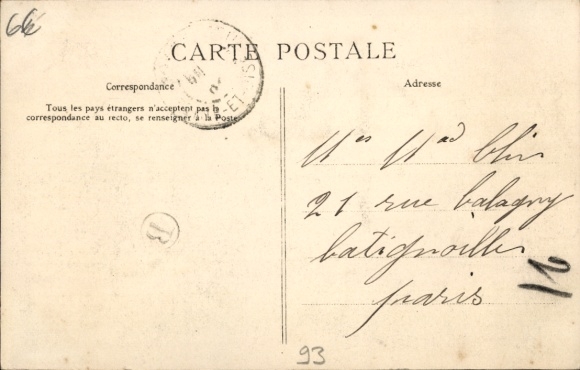 66
CARTE POSTALE
Correspondance
Tous les pays étrangers n'acceptent pas la
correspondance au recto, se renseigner à la Poste
B
Adresse
Mes Mad Blin
21 rue balagny
batignolles
paris
93